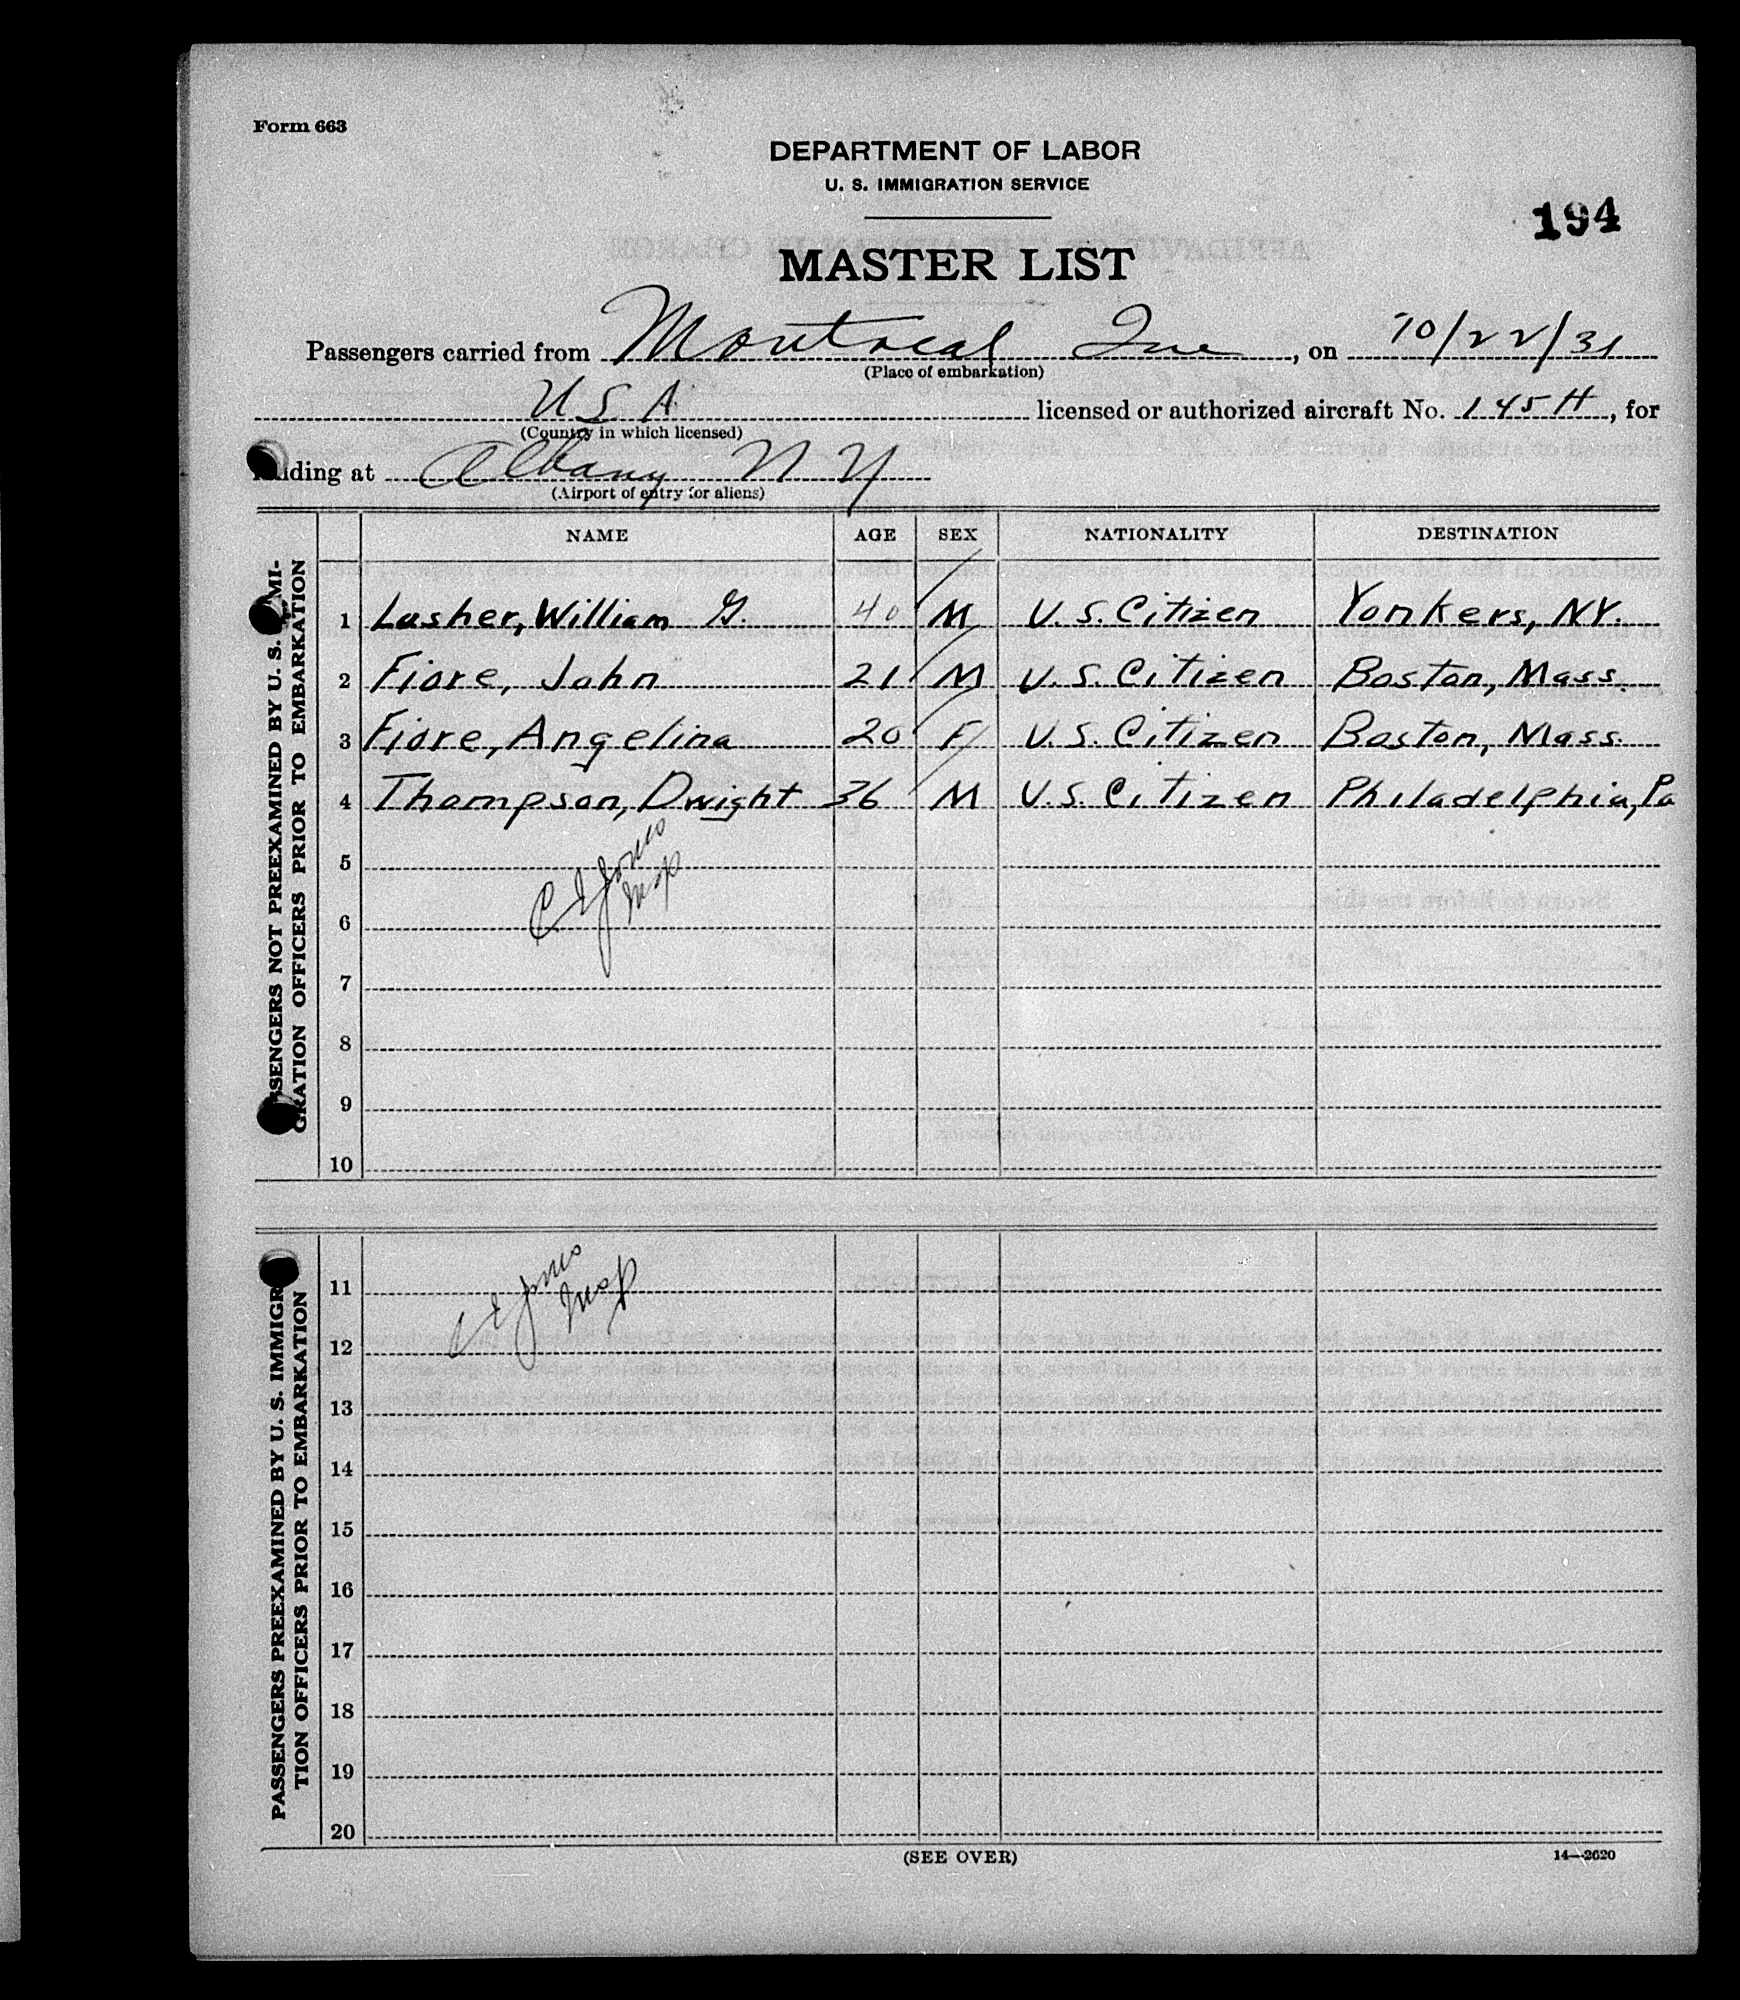 Form 663
DEPARTMENT OF LABOR
U. S. IMMIGRATION SERVICE
194
MASTER LIST
Passengers carried from Montreal Que, on 10/22/31
(Place of embarkation)
USA licensed or authorized aircraft No. 145H, for
(Country in which licensed)
landing at Albany N Y
(Airport of entry for aliens)
NAME AGE SEX NATIONALITY DESTINATION
PASSENGERS NOT PREEXAMINED BY U. S. IMMI-
GRATION OFFICERS PRIOR TO EMBARKATION
1 Lusher, William G. 40 M U.S. Citizen Yonkers, NY.
2 Fiore, John 21 M U.S. Citizen Boston, Mass.
3 Fiore, Angelina 20 F U.S. Citizen Boston, Mass.
4 Thompson, Dwight 36 M U.S. Citizen Philadelphia, Pa
5
C E Jones
Insp
6
7
8
9
10
PASSENGERS PREEXAMINED BY U. S. IMMIGRA-
TION OFFICERS PRIOR TO EMBARKATION
C E Jones
Insp
11
12
13
14
15
16
17
18
19
20
(SEE OVER)
14—2620